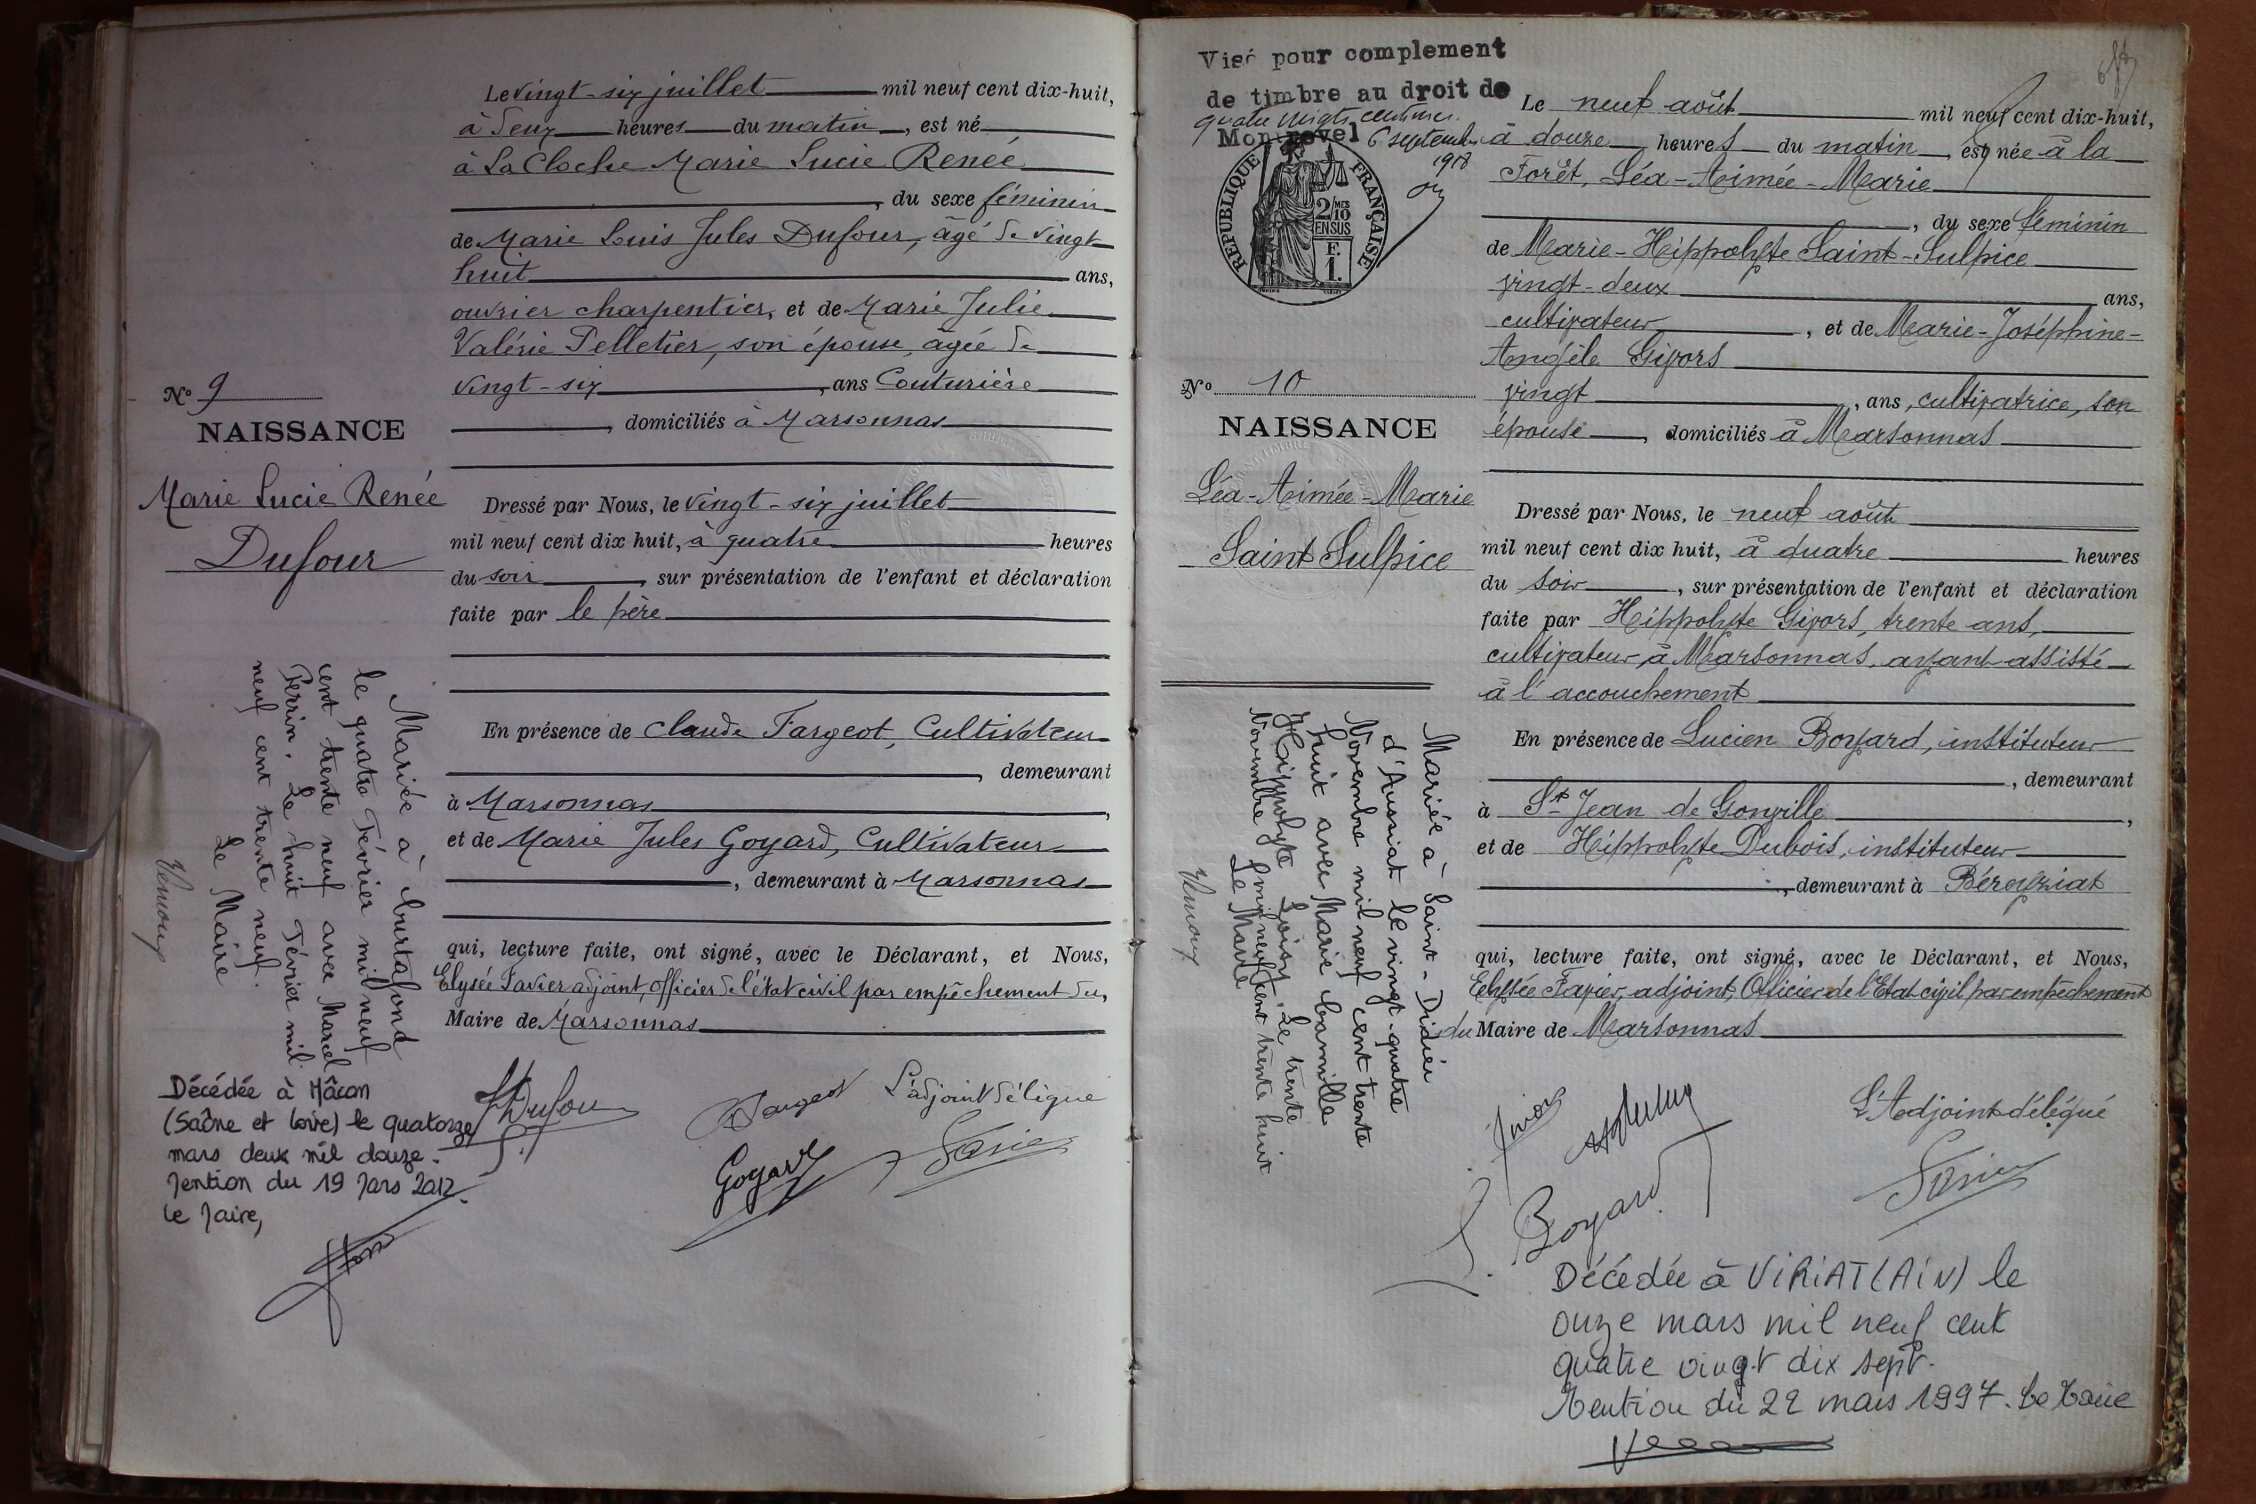 Le vingt-six juillet mil neuf cent dix-huit,
à deux heures du matin, est né
à La Cloche Marie Lucie Renée
, du sexe féminin
de Marie Louis Jules Dufour, âgé de vingt
huit ans,
ouvrier charpentier, et de Marie Julie
Valérie Pelletier, son épouse, agée de
vingt-six, ans Couturière
, domiciliés à Marsonnas
N° 9
NAISSANCE
Marie Lucie Renée
Dufour
Dressé par Nous, le vingt-six juillet
mil neuf cent dix huit, à quatre heures
du soir, sur présentation de l'enfant et déclaration
faite par le père
En présence de Claude Fargeot, Cultivateur
, demeurant
à Marsonnas,
et de Marie Jules Goyard, Cultivateur
, demeurant à Marsonnas
qui, lecture faite, ont signé, avec le Déclarant, et Nous,
Elysée Favier adjoint, officier de l'état civil par empêchement du,
Maire de Marsonnas
Mariée à Curtafond
le quatre Février mil neuf
cent trente neuf avec Marcel
Perrin. Le huit Février mil
neuf cent trente neuf.
Le Maire
Décédée à Mâcon
(Saône et Loire) le quatorze
mars deux mil douze.
Mention du 19 Mars 2012.
Le Maire,
Dufour
Fargeot
L'adjoint délégué
Goyard
Favier
Visé pour complement
de timbre au droit de
quatre vingts centimes.
Montrevel 6 septembre
1918
RÉPUBLIQUE FRANÇAISE
2/MES
10
EN SUS
F.
1.
Le neuf août mil neuf cent dix-huit,
à douze heures du matin, est née à la
Forêt, Léa-Aimée-Marie
, du sexe féminin
de Marie-Hippolyte Saint-Sulpice
vingt-deux ans,
cultivateur, et de Marie-Joséphine-
Angèle Givors
vingt, ans, cultivatrice, son
épouse, domiciliés à Marsonnas
N° 10
NAISSANCE
Léa-Aimée-Marie
Saint Sulpice
Dressé par Nous, le neuf août
mil neuf cent dix huit, à quatre heures
du soir, sur présentation de l'enfant et déclaration
faite par Hippolyte Givors, trente ans,
cultivateur à Marsonnas, ayant assisté
à l'accouchement
En présence de Lucien Boyard, instituteur
, demeurant
à St Jean de Gonville,
et de Hippolyte Dubois, instituteur
, demeurant à Béreyziat
qui, lecture faite, ont signé, avec le Déclarant, et Nous,
Elysée Favier, adjoint, Officier de l'Etat civil par empêchement
du Maire de Marsonnas
Mariée à Saint-Didier
d'Aussiat le vingt-quatre
Novembre mil neuf cent trente
huit avec Marie Camille
Hippolyte Loisy. Le trente
Novembre mil neuf cent trente huit
Le Maire
L'Adjoint délégué
Givors
Boyard
Favier
Décédée à VIRIAT (AIN) le
onze mars mil neuf cent
quatre vingt dix sept.
Mention du 22 mars 1997. Le Maire